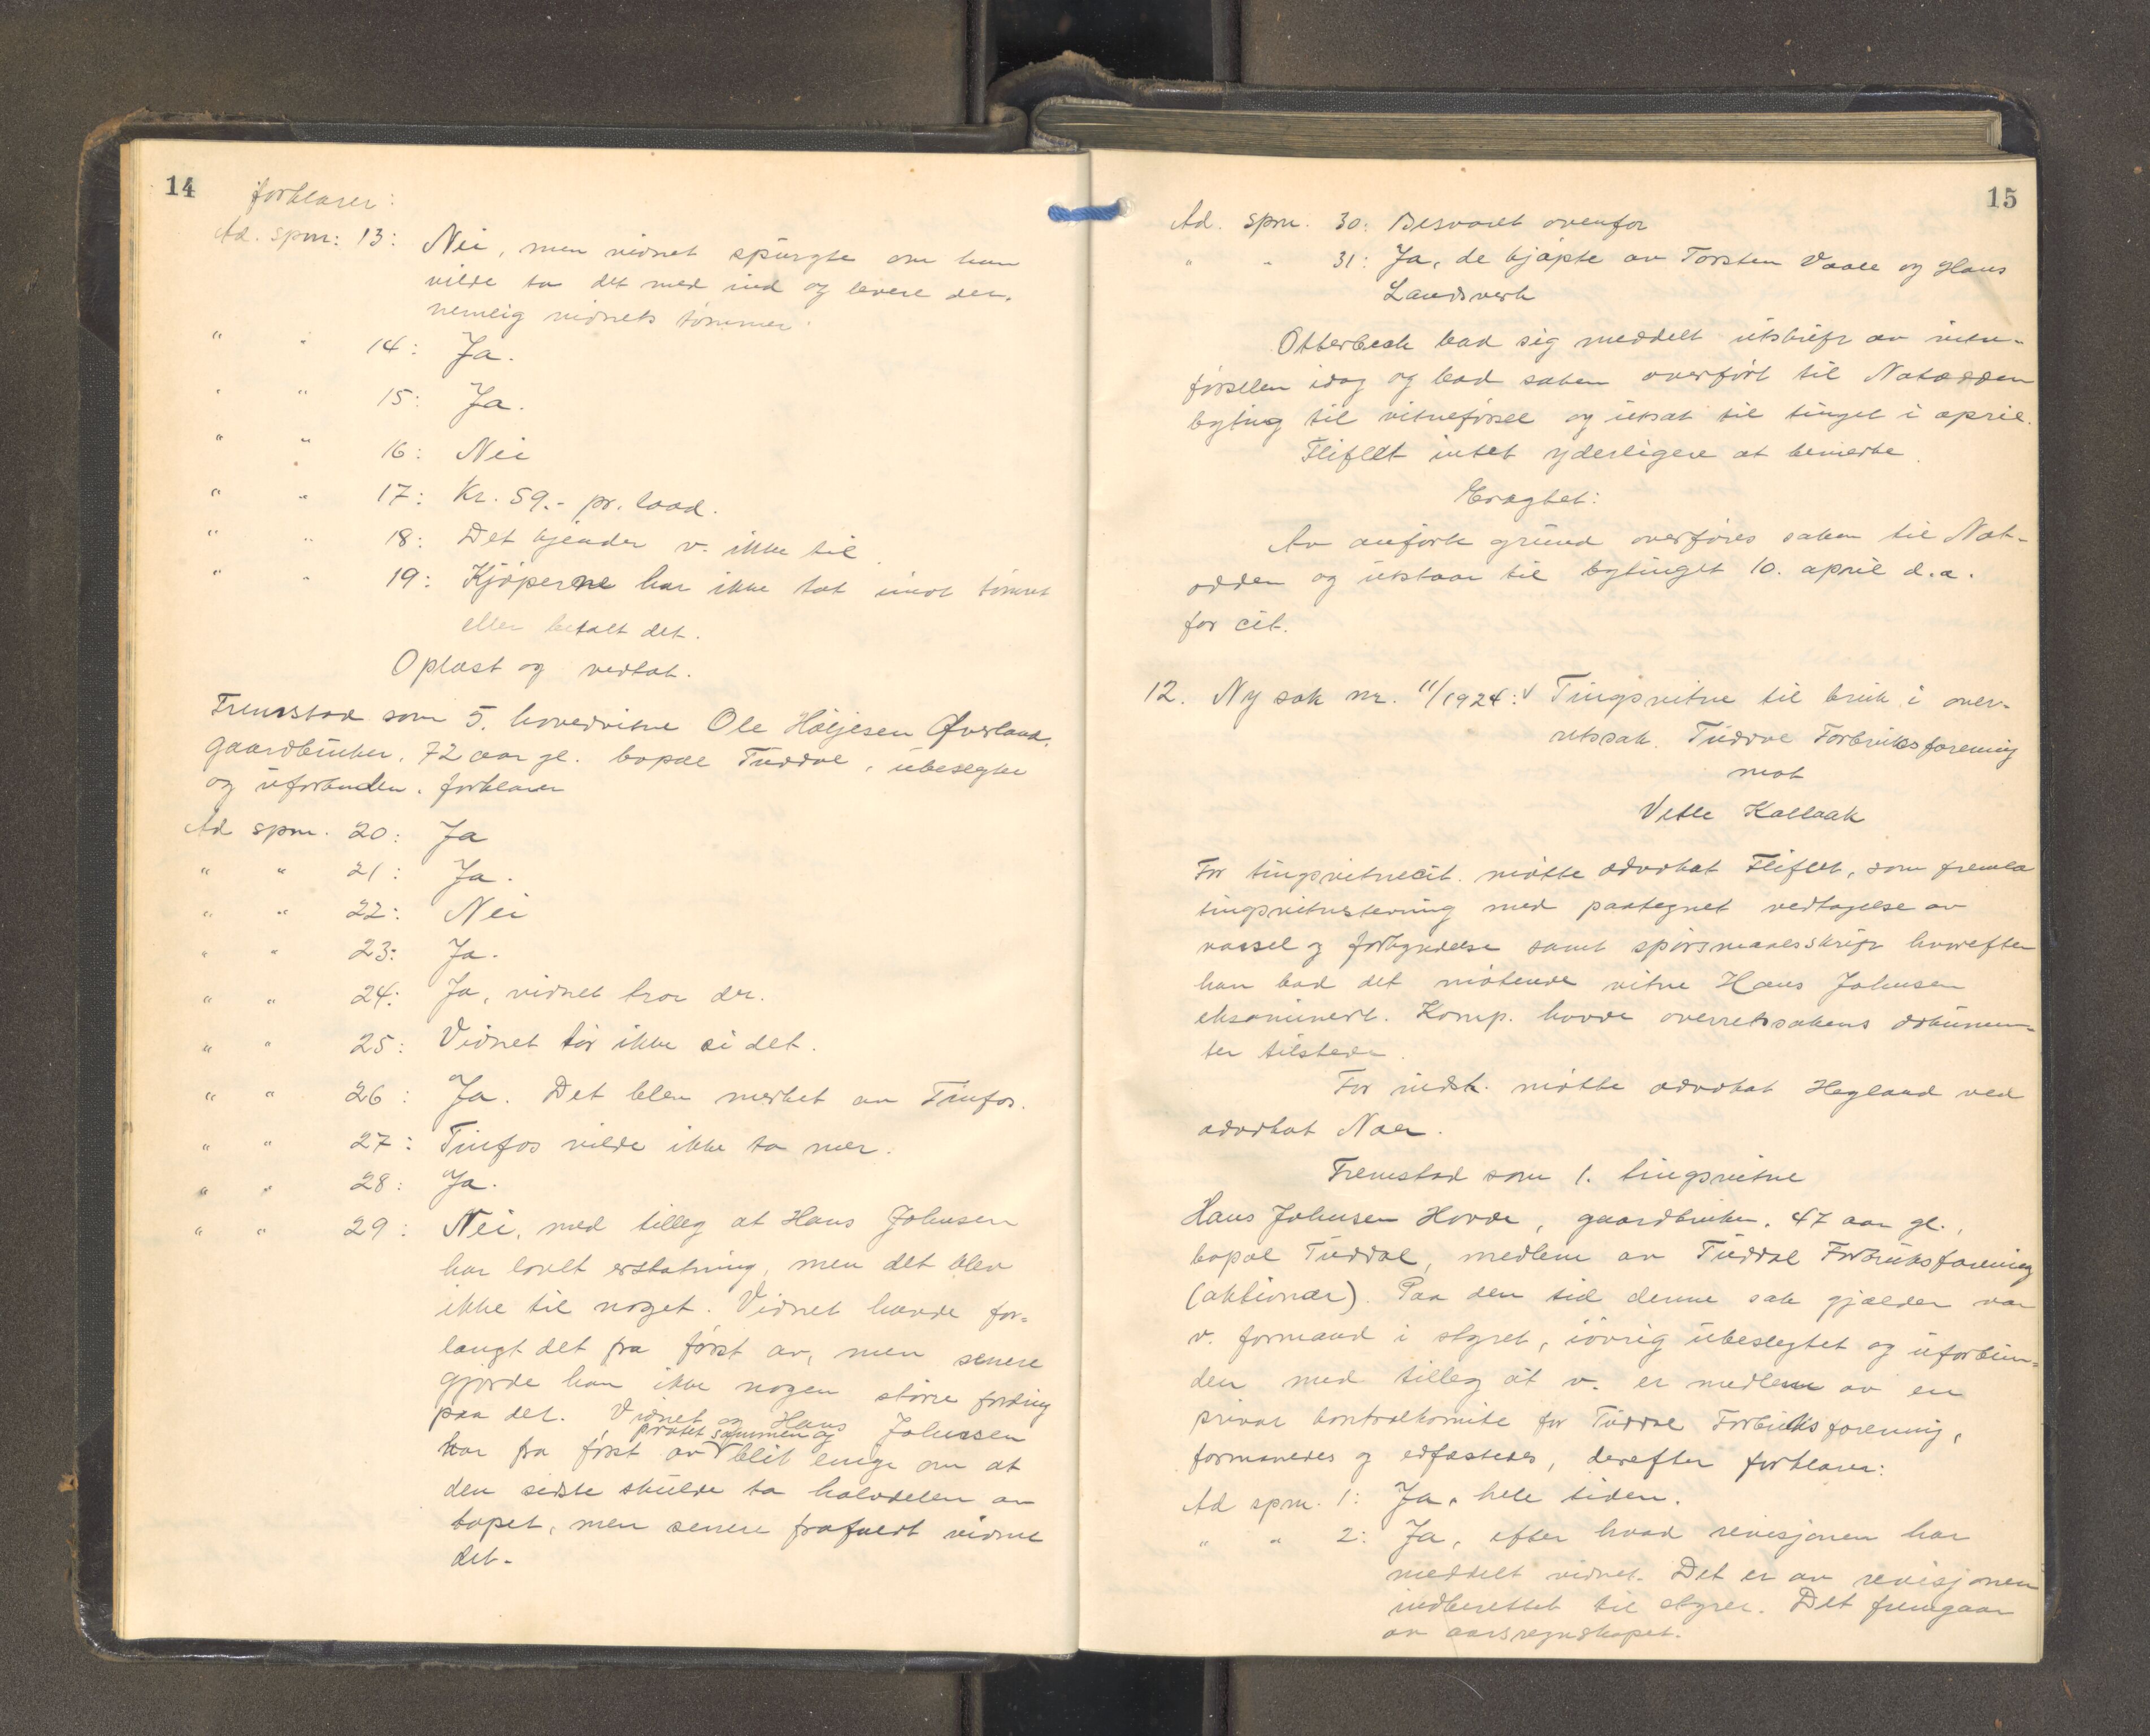 14
forklarer:
Ad. spm: 13: Nei, men vidnet spurgte om han
vilde ta det med ind og levere der,
nemlig vidnets tømmer.
" " 14: Ja.
" " 15: Ja.
" " 16: Nei
" " 17: Kr. 59.- pr. laad.
" " 18: Det kjender v. ikke til
" " 19: Kjøperene har ikke tat imot tømret
eller betalt det.
Oplæst og vedtat.
Fremstod som 5. hovedvitne Ole Høljesen Øverland,
gaardbruker, 72 aar gl. bopæl Tuddal, ubeslegtet
og uforbunden, forklarer
Ad spm. 20: Ja
" " 21: Ja.
" " 22: Nei
" " 23: Ja.
" " 24: Ja, vidnet tror det.
" " 25: Vidnet tør ikke si det.
" " 26: Ja. Det blev merket av Tinfos.
" " 27: Tinfos vilde ikke ta mer.
" " 28: Ja.
" " 29: Nei, med tillæg at Hans Johnsen
har lovet erstatning, men det blev
ikke til noget. Vidnet havde for-
langt det fra først av, men senere
gjorde han ikke nogen større fordring
paa det. Vidnet og Hans Johnsen
har fra først av pratet sammen og blit enige om at
den sidste skulde ta halvdelen av
tapet, men senere frafaldt vidnet
det.
15
Ad. spm. 30: Besvaret ovenfor
" " 31: Ja, de kjøpte av Torsten Vaale og Hans
Landsverk
Otterbech bad sig meddelt utskrift av vitne-
førselen idag og bad saken overført til Notodden
byting til vitneførsel og utsat til tinget i april.
Fliflet intet yderligere at bemerke.
Eragtet:
Av anført grund overføres saken til Not-
odden og utstaar til bytinget 10. april d.a.
for cit.
12. Ny sak nr. 11/1924: Tingsvitne til bruk i over-
retssak. Tuddal Forbruksforening
mot
Vetle Kallaak
For tingsvitnecit. møtte advokat Fliflet, som fremla
tingsvitnestevning med paategnet vedtagelse av
varsel og forkyndelse samt spørsmaalsskrift hvorefter
han bad det møtende vitne Hans Johnsen
eksaminert. Komp. havde overretssakens dokumen-
ter tilstede.
For indst. møtte advokat Hegland ved
advokat Naer.
Fremstod som 1. tingsvitne
Hans Johnsen Hovde, gaardbruker, 47 aar gl.,
bopæl Tuddal, medlem av Tuddal Forbruksforening
(aktionær). Paa den tid denne sak gjælder var
v. formand i styret, iøvrig ubeslegtet og uforbun-
den med tillæg at v. er medlem av en
privat kontrolkomite for Tuddal Forbruksforening,
formanedes og edfæstedes, derefter forklarer:
Ad spm. 1: Ja, hele tiden.
" " 2: Ja, efter hvad revisjonen har
meddelt vidnet. Det er av revisjonen
indberettet til styret. Det fremgaar
av aarsregnskapet.